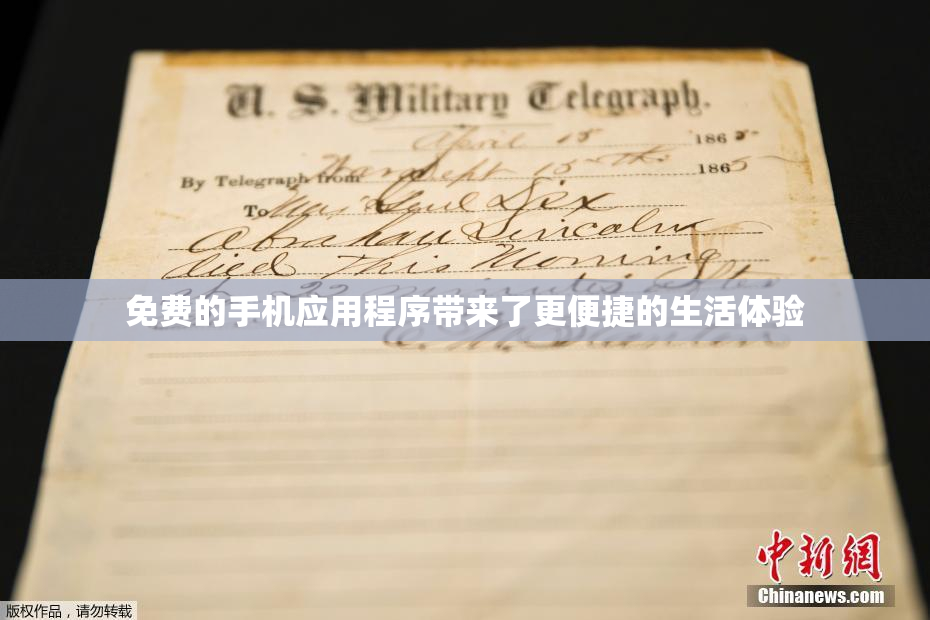 U. S. Military Telegraph.
April 15 1865
By Telegraph from War Dept 15th 1865
To Maj Genl Dix
Abraham Lincoln
died This Morning
at 22 minutes after
免费的手机应用程序带来了更便捷的生活体验
E. M. Stanton
中新网
Chinanews.com
版权作品，请勿转载